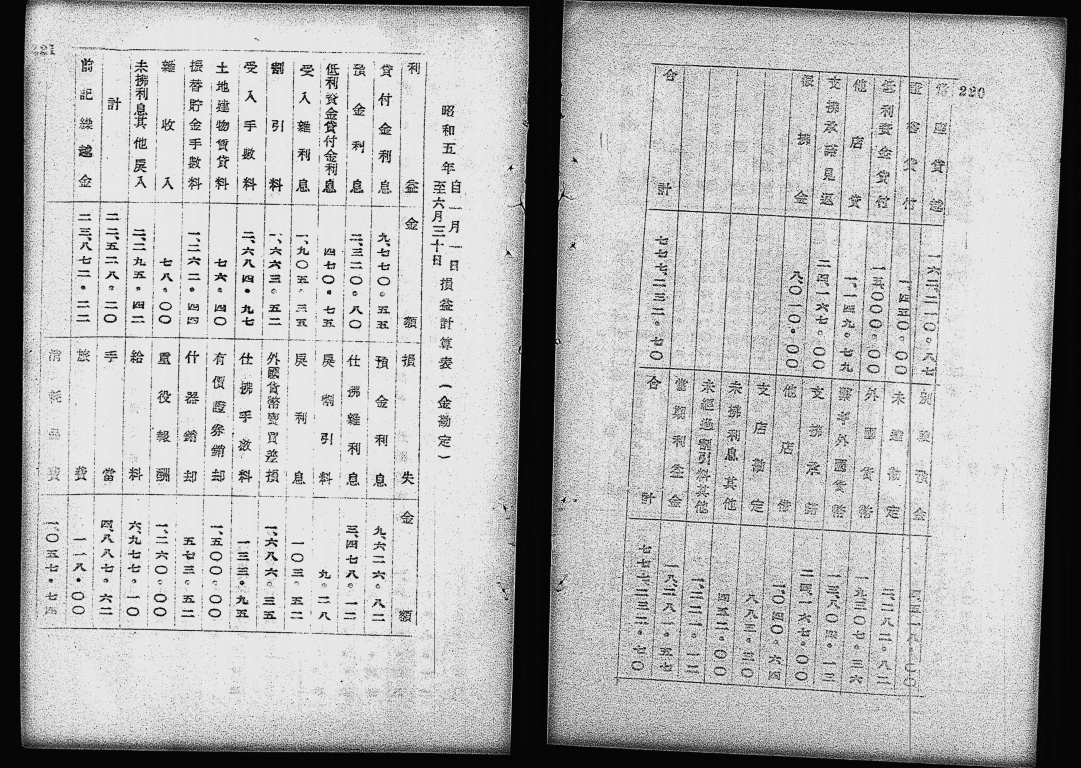 220
當座貸越 一六二、二一〇・八七
證書貸付 一、四五〇・〇〇
低利資金貸付 一五、〇〇〇・〇〇
他店貸 一、一四九・七九
支拂承諾見返 二四、一六七・〇〇
假拂金 八、〇一〇・〇〇
合計 七七七、二三二・七〇
別段預金
未達勘定 二、二八二・八二
外國貨幣 一、九三〇七・三六
支拂承諾 二四、一六七・〇〇
他店借 二、〇四〇・六四
支店勘定 八八三・三〇
未拂利息其他 四五二・〇〇
未經過割引料其他 二、二二一・一二
當期利益金 一八、二八一・五七
合計 七七七、二三二・七〇
221
昭和五年 自一月一日 至六月三十日 損益計算表(金勘定)
利益 金額
貸付金利息 九、七七〇・五五
預金利息 二、三二〇・八〇
低利資金貸付金利息 四七〇・七五
受入雜利息 一、九〇五・三五
割引料 一、六六三・五二
受入手數料 二、六八四・九七
土地建物賃貸料 七六・四〇
振替貯金手數料 一、二六二・四四
雜收入 七八・〇〇
未拂利息其他戾入 二、二九五・四二
計 二二、五二八・二〇
前記繰越金 二三、八七二・二二
損失 金額
預金利息 九、六二六・八二
仕拂雜利息 三、四七八・一二
戾割引料 九・二八
戾利息 一〇三・五二
外國貨幣賣買差損 一、六八六・三五
仕拂手數料 一三三・九五
有價證券銷却 一、五〇〇・〇〇
什器銷却 五七三・五二
重役報酬 一、二六〇・〇〇
給料 六、九七七・一〇
手當 四、八八七・六二
旅費 一一八・〇〇
消耗品費 一、〇五七・七四